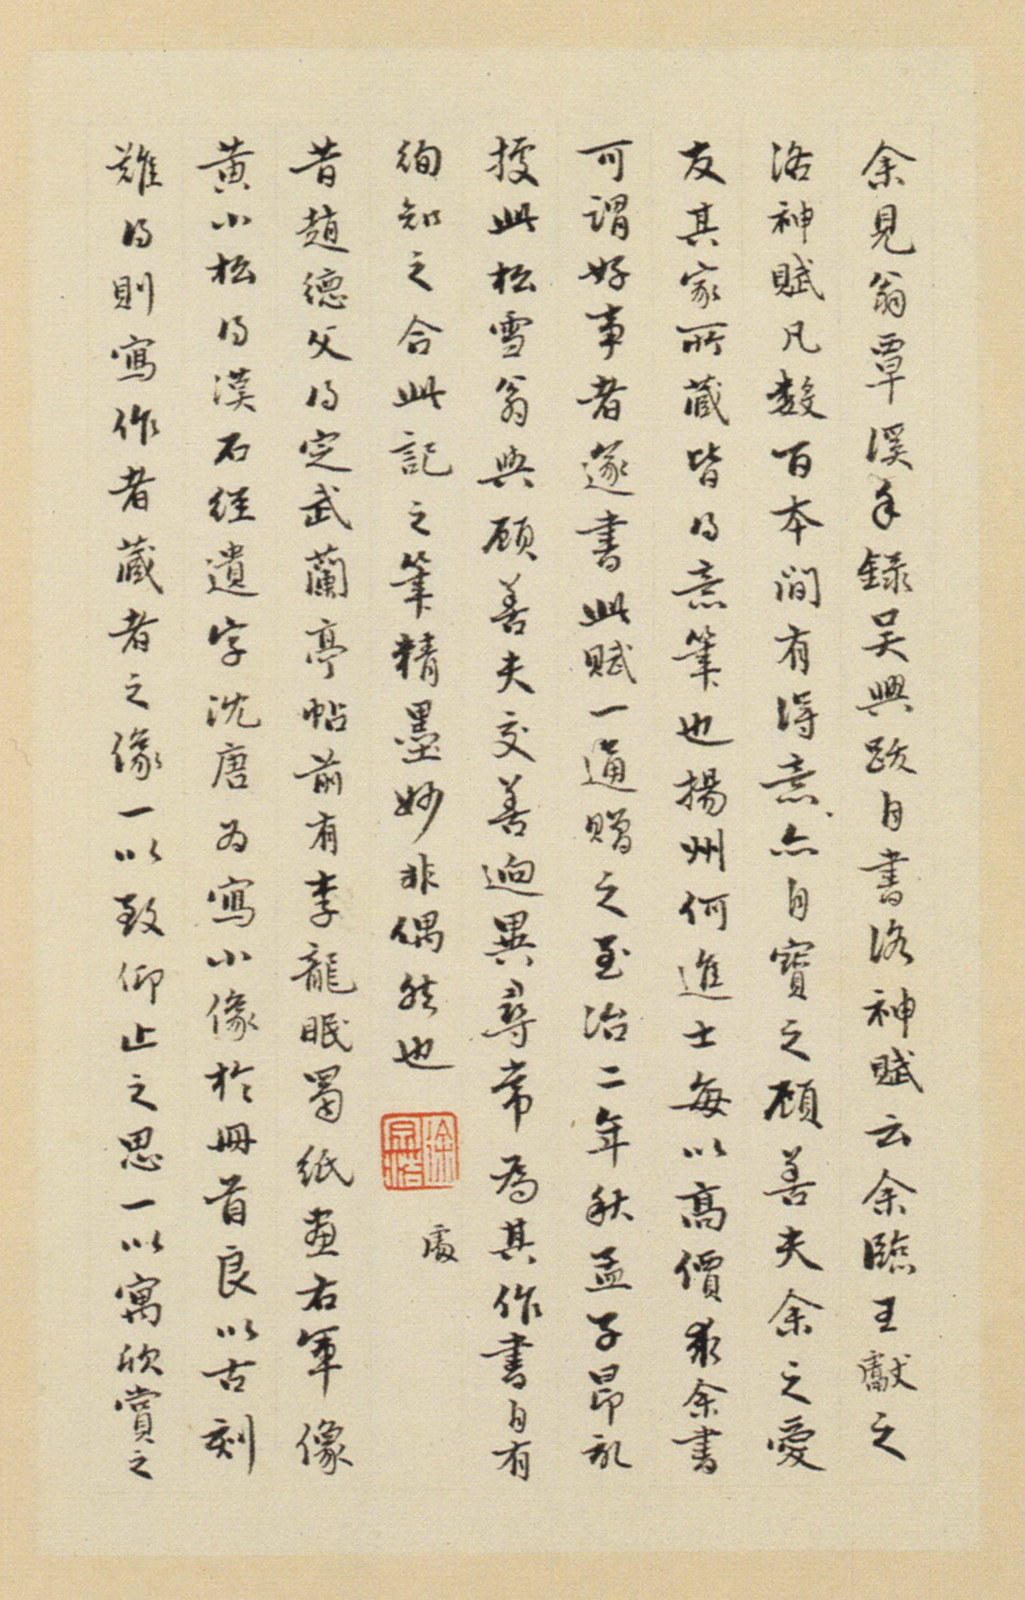 余見翁覃溪手録吴興跋自書洛神賦云余臨王獻之
洛神賦凡數百本間有得意亦自寶之顧善夫余之愛
友其家所藏皆得意筆也揚州何進士每以高價求余書
可謂好事者遂書此賦一通贈之至治二年秋孟子昂記
據此松雪翁與顧善夫交善迥異尋常為其作書自有
徇知之合此記之筆精墨妙非偶然也
徐邦
處
昔趙德父得定武蘭亭帖前有李龍眠蜀紙畫右軍像
黄小松得漢石經遺字沈唐为寫小像於冊首良以古刻
難得則寫作者藏者之像一以致仰止之思一以寓欣賞之